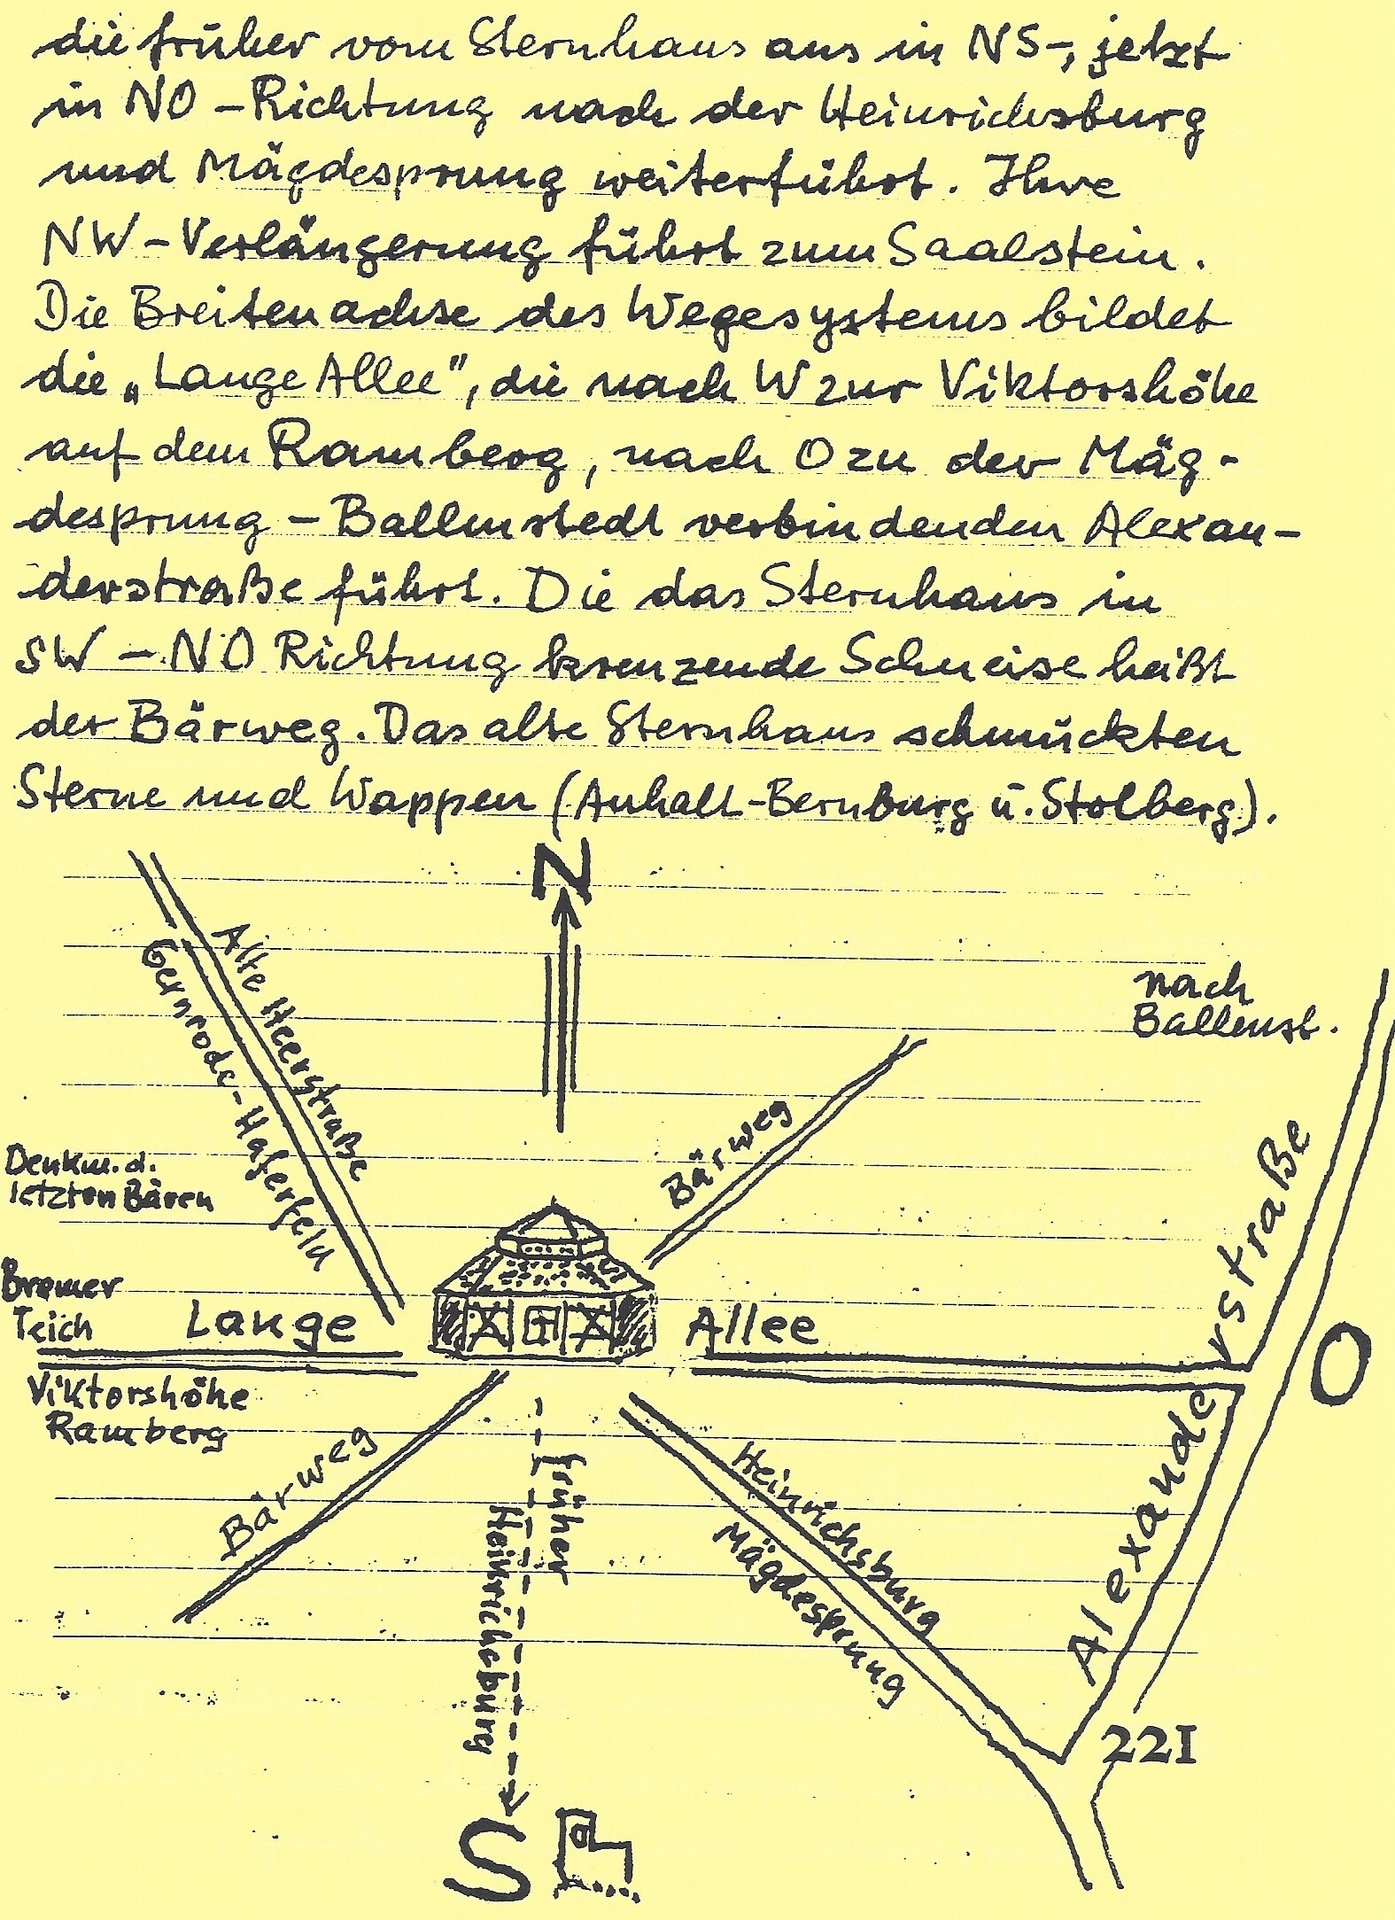 die früher vom Sternhaus aus in NS-, jetzt
in NO-Richtung nach der Heinrichsburg
und Mägdesprung weiterführt. Ihre
NW-Verlängerung führt zum Saalstein.
Die Breitenachse des Wegesystems bildet
die „Lange Allee", die nach W zur Viktorshöhe
auf dem Ramberg, nach O zu der Mäg-
desprung - Ballenstedt verbindenden Alexan-
derstraße führt. Die das Sternhaus in
SW - NO Richtung kreuzende Schneise heißt
der Bärweg. Das alte Sternhaus schmückten
Sterne und Wappen (Anhalt-Bernburg u. Stolberg).
N
Alte Heerstraße
Gernrode-Haferfeld
nach
Ballenst.
Bärweg
Denkm. d.
letzten Bären
Bremer
Teich
Lange Allee
Viktorshöhe
Ramberg
Alexanderstraße
O
Bärweg
früher
Heinrichsburg
Heinrichsburg
Mägdesprung
221
S